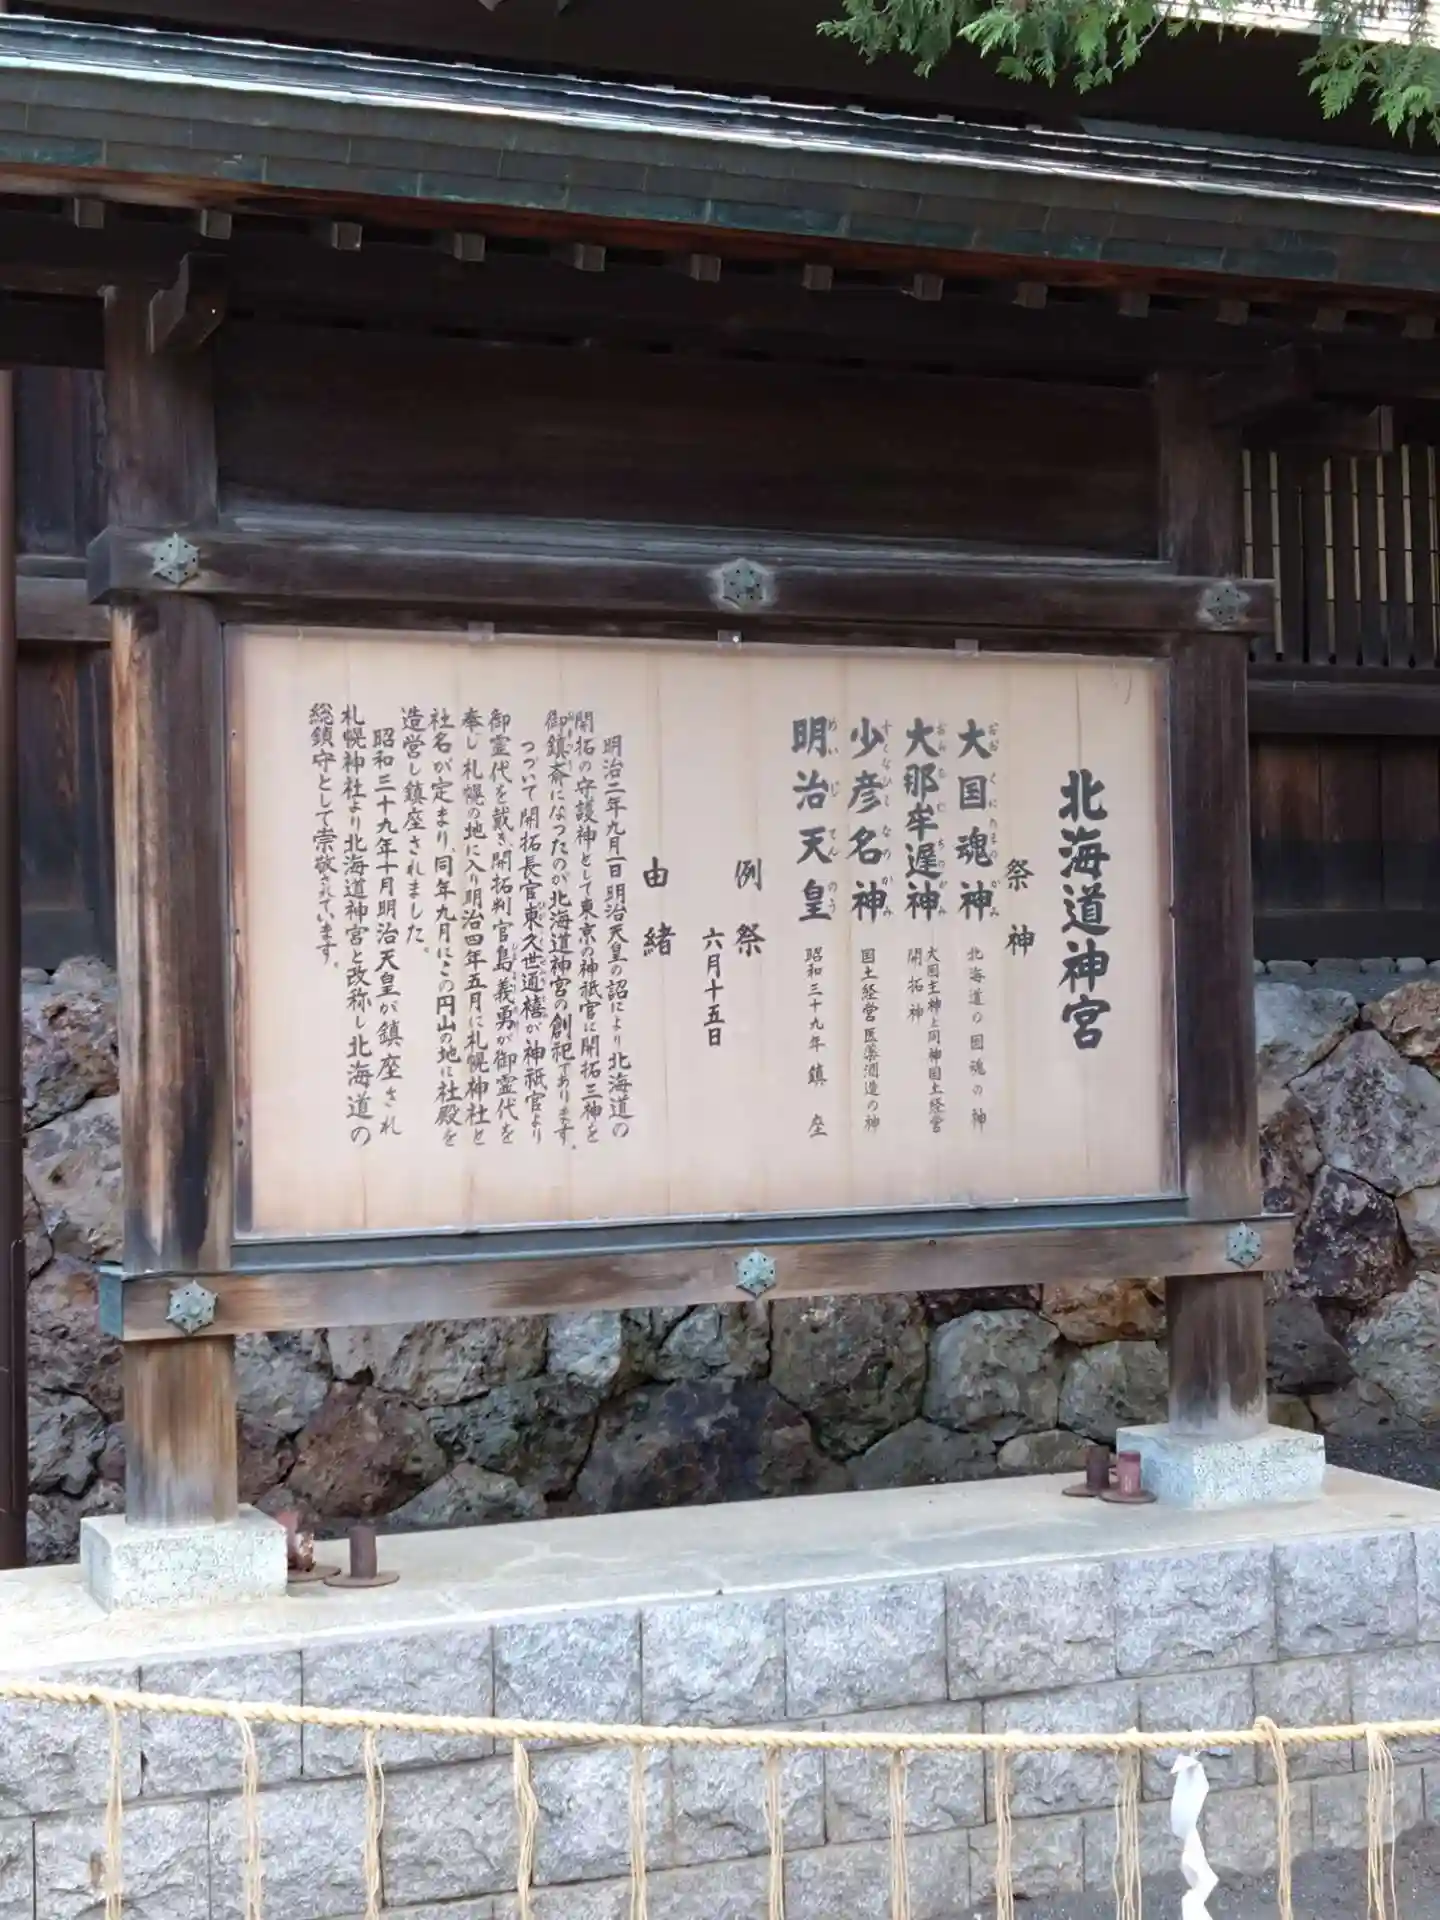 北海道神宮
祭神
大国魂神 北海道の国魂の神
大那牟遅神 大国主神と同神国土経営
開拓神
少彦名神 国土経営医薬酒造の神
明治天皇 昭和三十九年鎮座
例祭
六月十五日
由緒
明治二年九月一日明治天皇の詔により北海道の
開拓の守護神として東京の神祇官に開拓三神を
御鎮斎になつたのが北海道神宮の創祀であります。
つづいて開拓長官東久世通禧が神祇官より
御霊代を戴き、開拓判官島義勇が御霊代を
奉じ札幌の地に入り明治四年五月に札幌神社と
社名が定まり、同年九月にこの円山の地に社殿を
造営し鎮座されました。
昭和三十九年十月明治天皇が鎮座され
札幌神社より北海道神宮と改称し北海道の
総鎮守として崇敬されています。